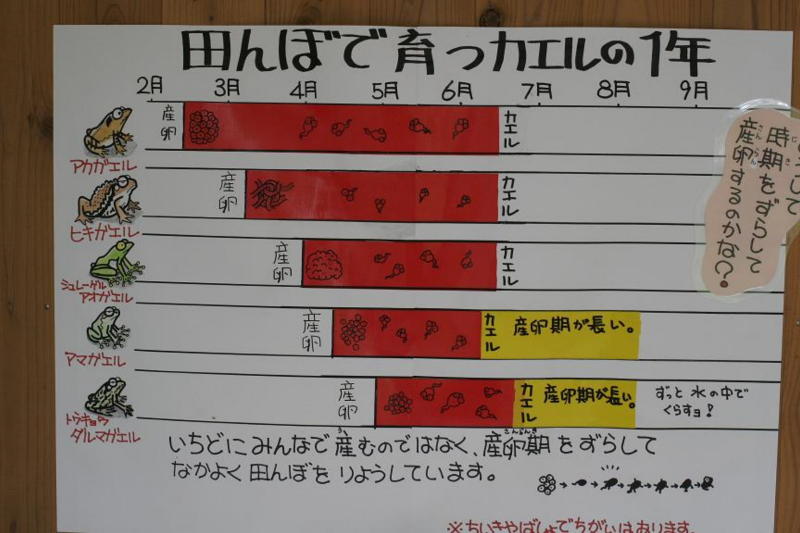 田んぼで育つカエルの1年
2月 3月 4月 5月 6月 7月 8月 9月
産卵 カエル
アカガエル
産卵 カエル
ヒキガエル
産卵 カエル
シュレーゲル
アオガエル
産卵 カエル 産卵期が長い。
アマガエル
産卵 カエル 産卵期が長い。 ずっと水の中で
くらすヨ!
トウキョウ
ダルマガエル
して
時期をずらして
産卵するのかな?
じき
さんらん
いちどにみんなで産むのではなく、産卵期をずらして
う
さんらんき
なかよく田んぼをりようしています。
※ちいきやばしょでちがいはあります。